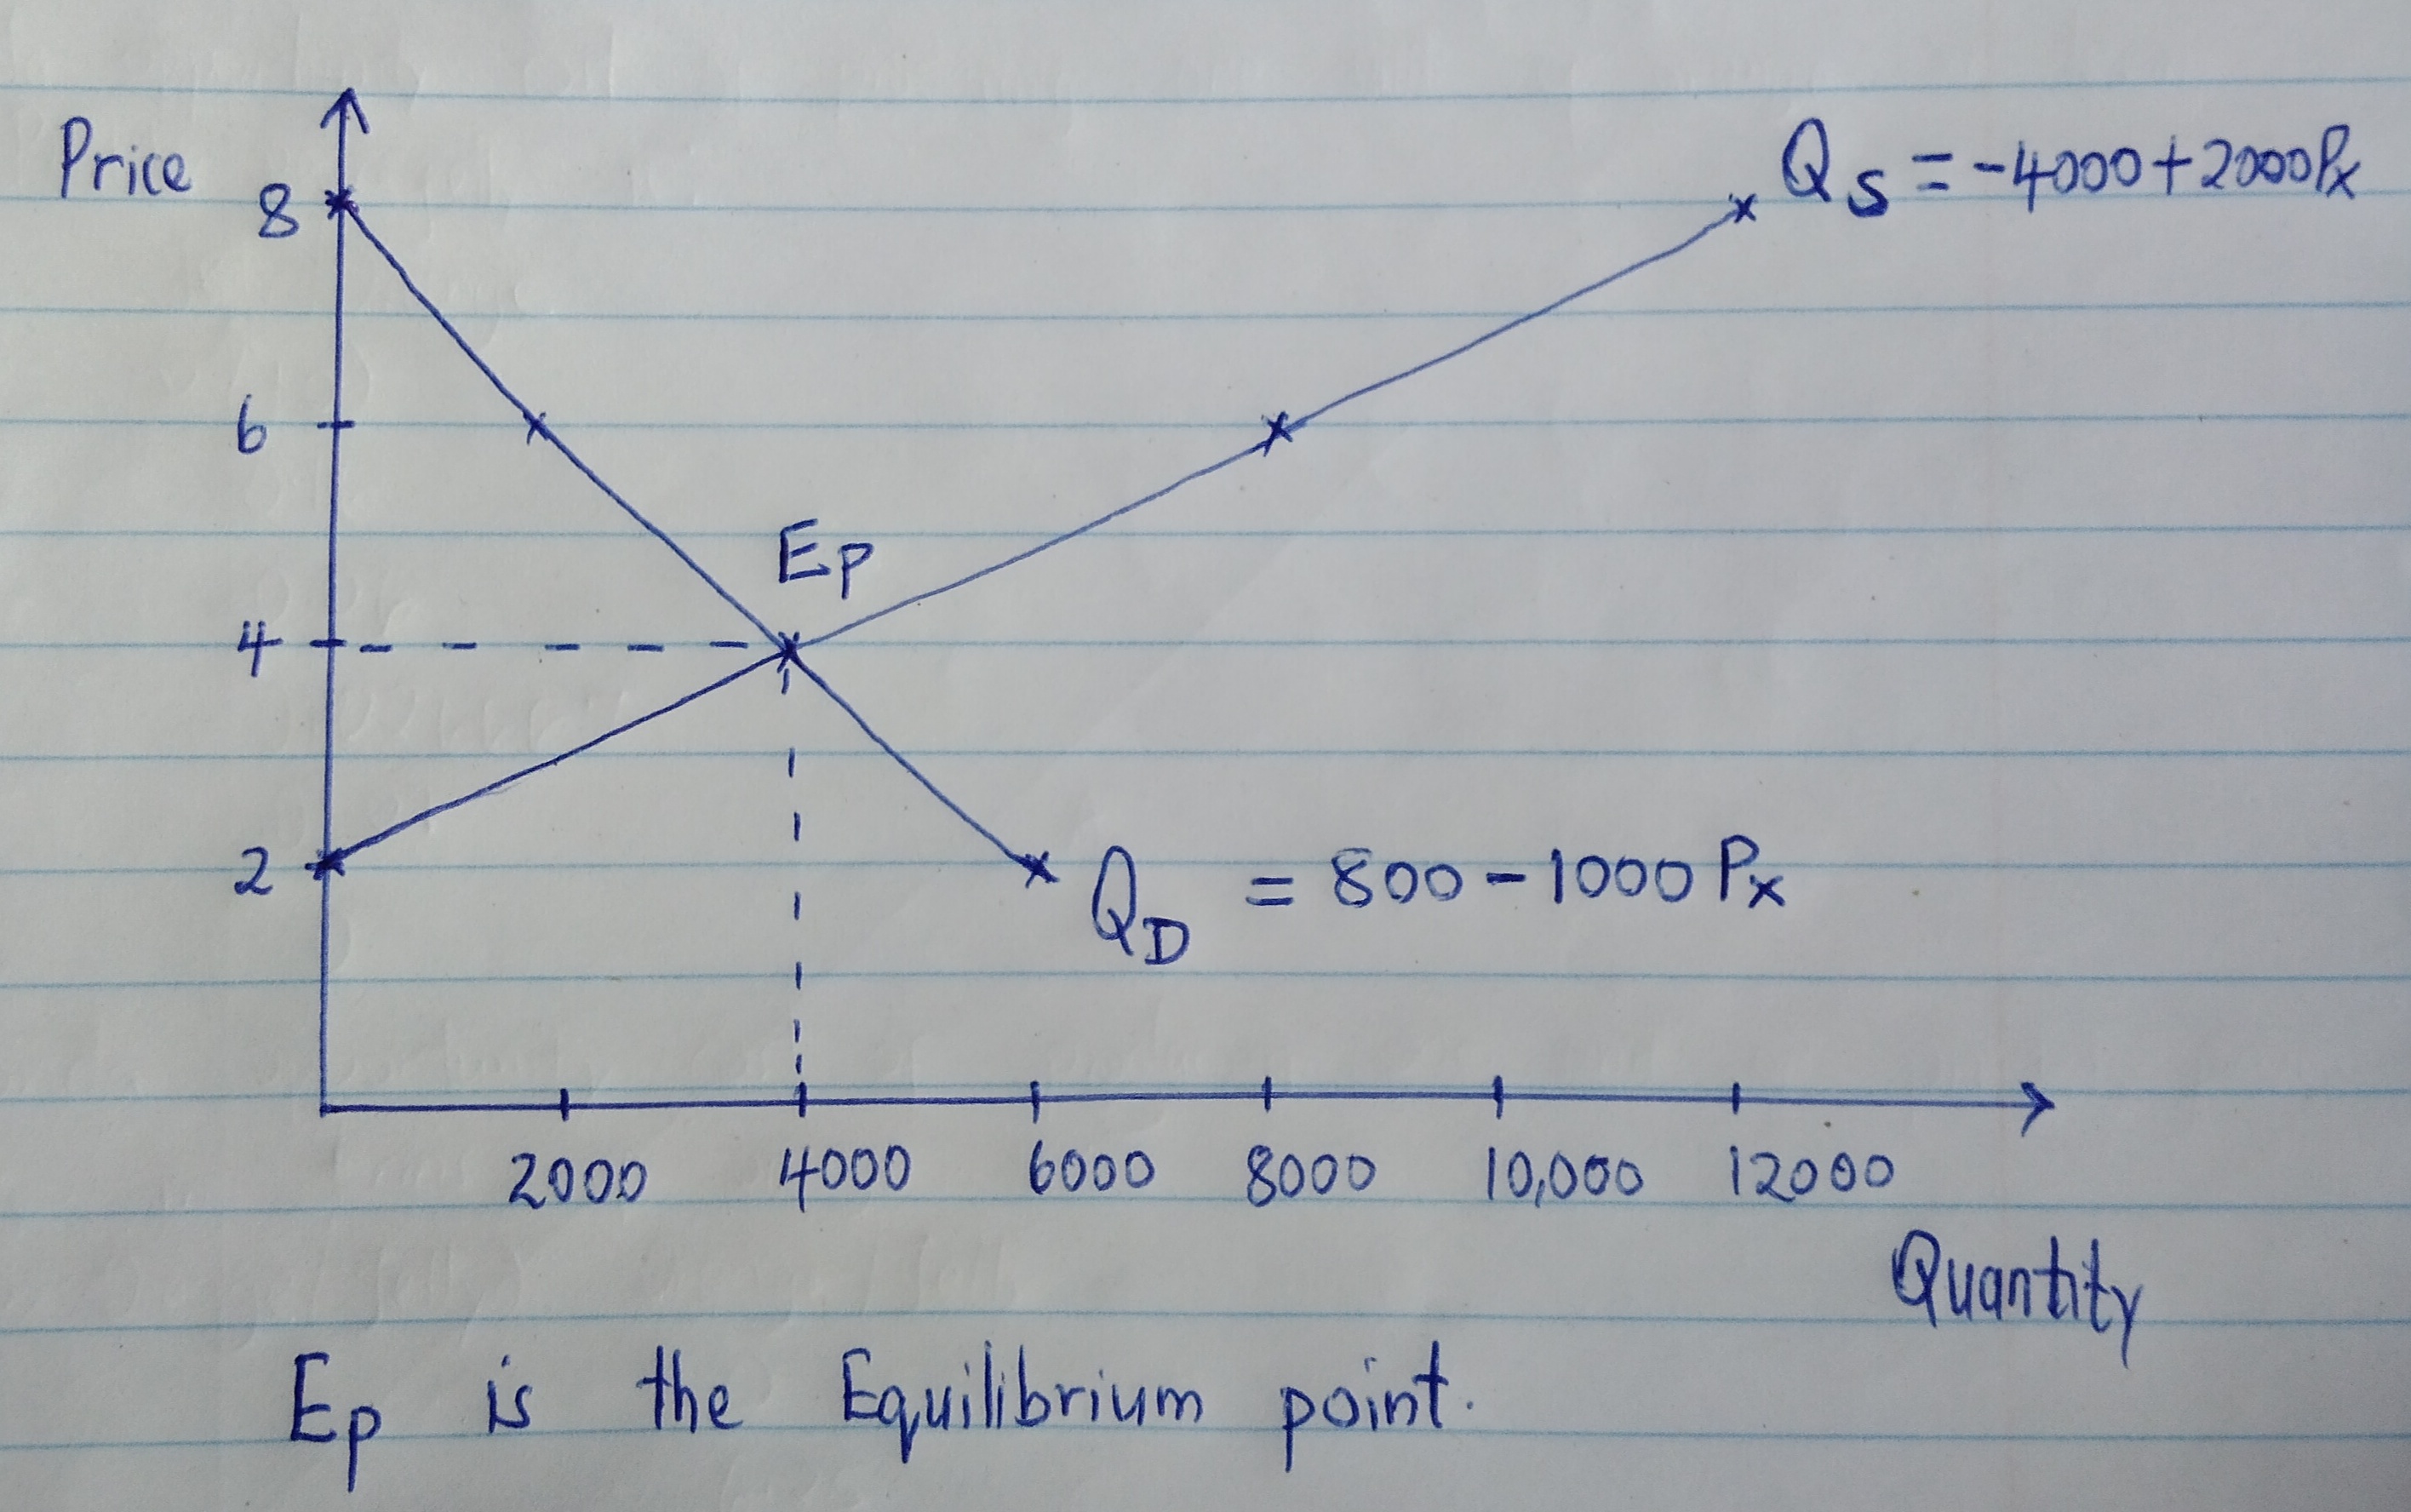 Price
8
Qs = -4000+2000Px
6
Ep
4
2
QD = 800-1000Px
2000 4000 6000 8000 10,000 12000
Quantity
Ep is the Equilibrium point.